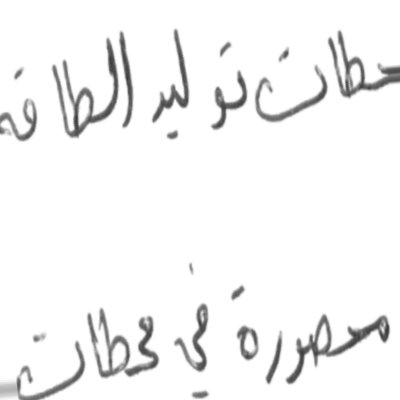 محطات توليد الطاقه
محصورة في محطات